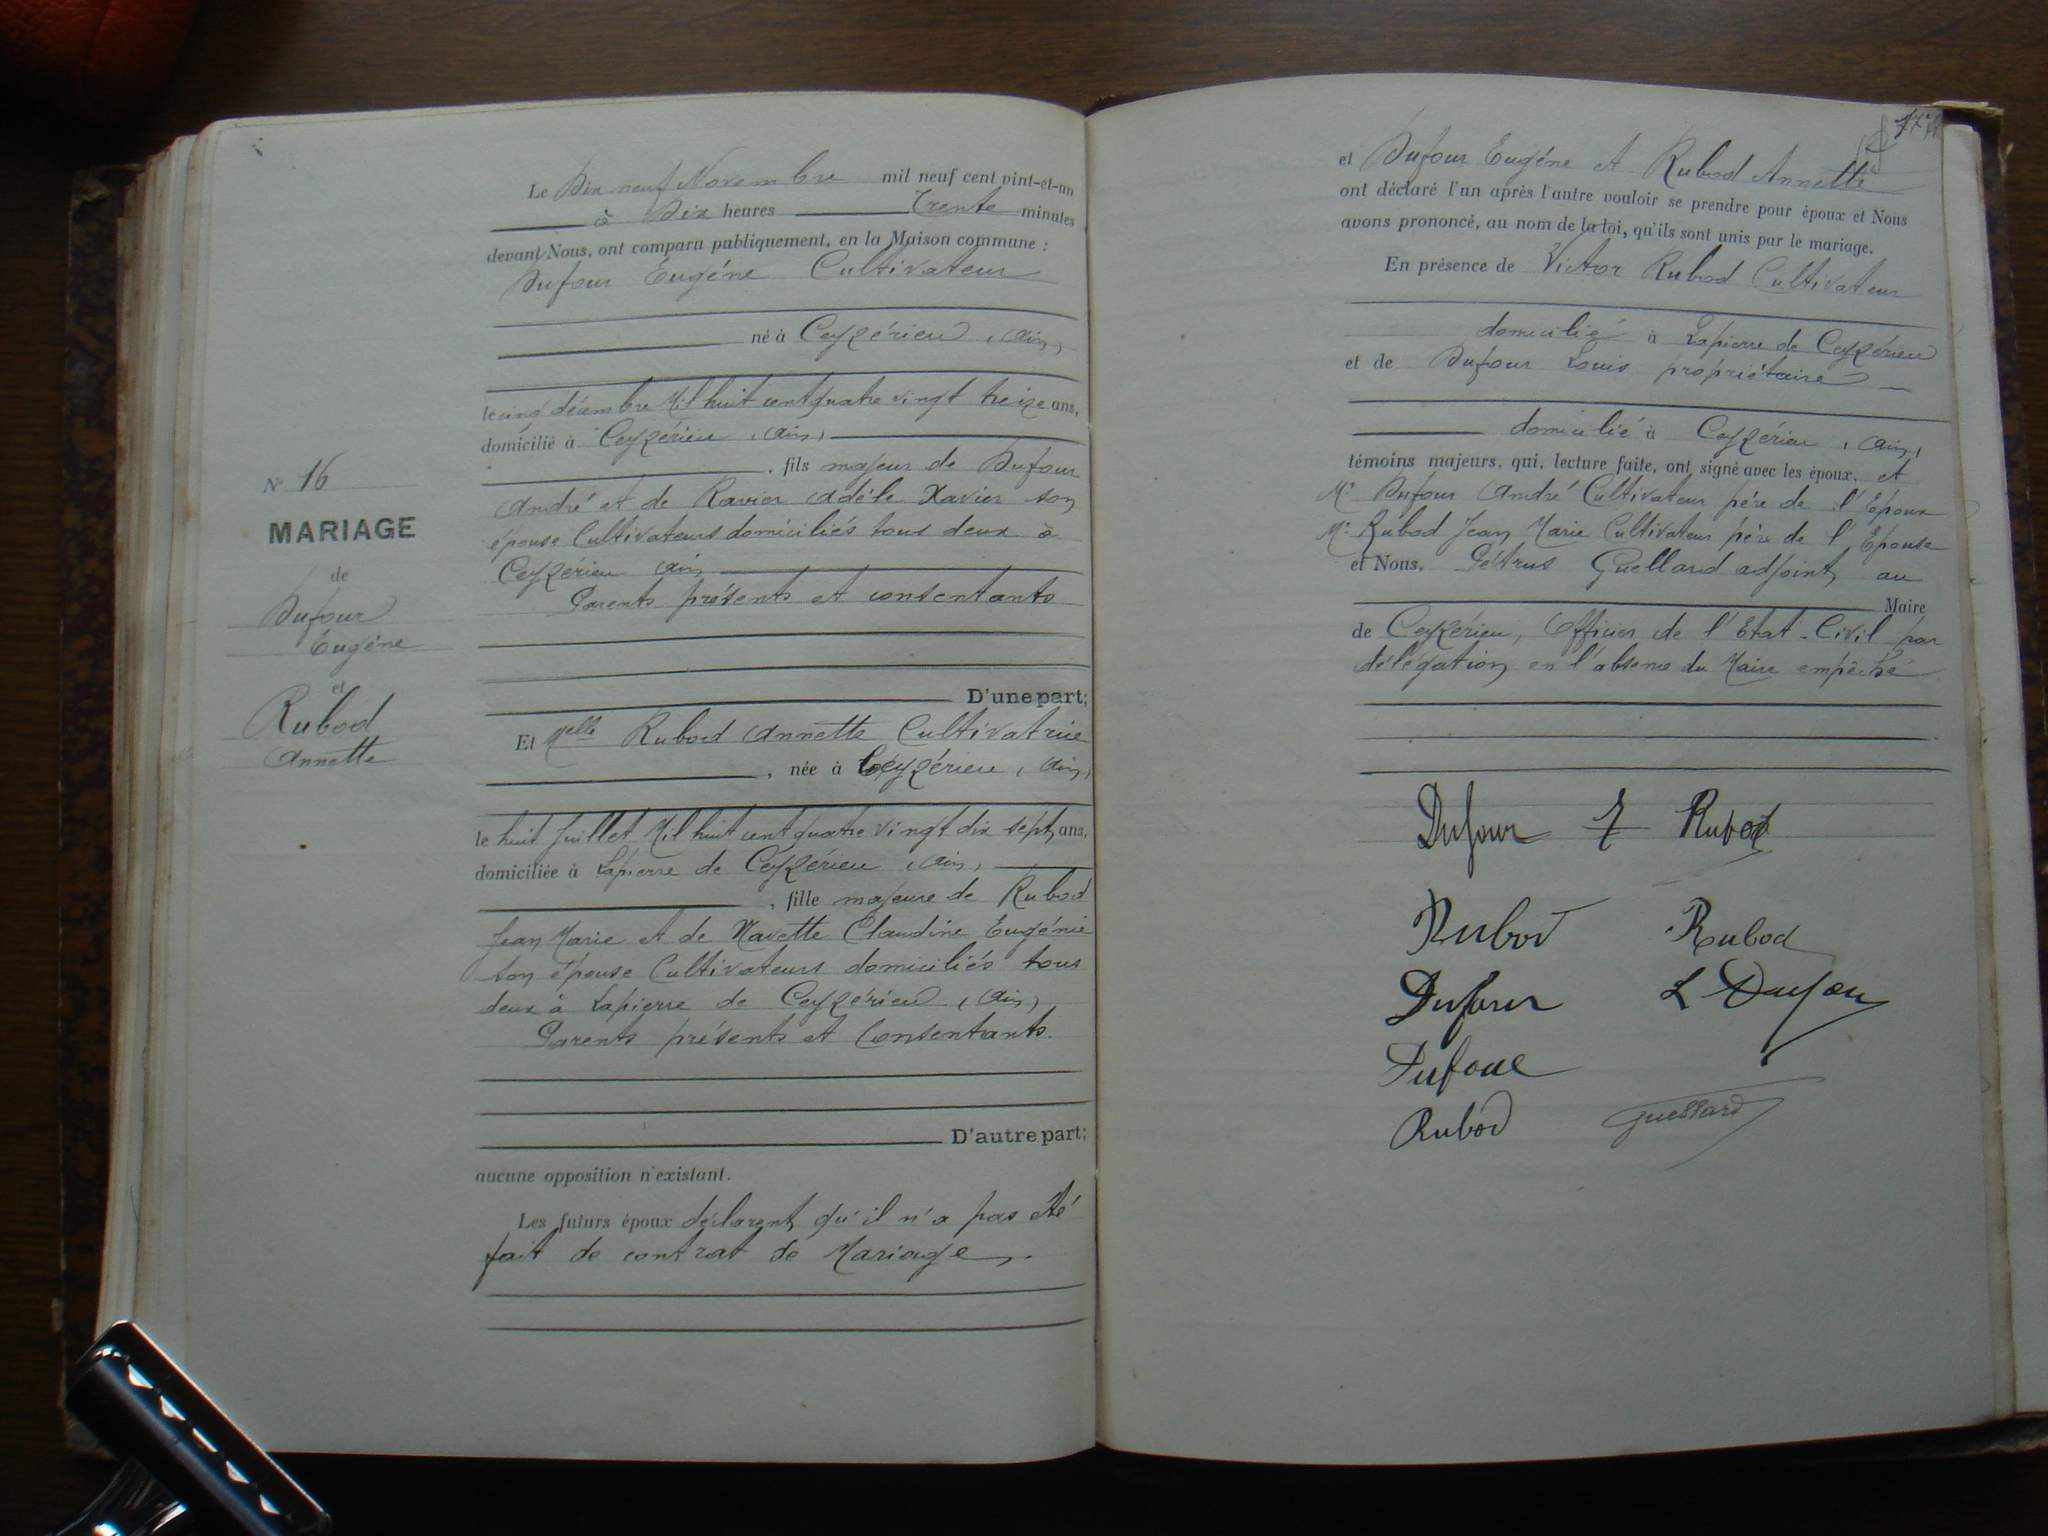 N° 16
MARIAGE
de
Dufour
Eugéne
et
Rubod
Annette
Le Dix neuf Novembre mil neuf cent vint-et-un
à Dix heures Trente minutes
devant Nous, ont comparu publiquement, en la Maison commune :
Dufour Eugéne Cultivateur
né à Ceyzérieu (Ain)
le cinq décembre Mil huit cent quatre vingt treize ans,
domicilié à Ceyzérieu (Ain)
, fils majeur de Dufour
André et de Ravier Adéle Xavier son
épouse Cultivateurs domiciliés tous deux à
Ceyzérieu Ain
Parents présents et consentants
D'une part;
Et Melle Rubod Annette Cultivatrice
, née à Ceyzérieu (Ain)
le huit Juillet Mil huit cent quatre vingt dix sept ans,
domiciliée à Lapierre de Ceyzérieu (Ain)
, fille majeure de Rubod
Jean Marie et de Navette Claudine Eugénie
son épouse Cultivateurs domiciliés tous
deux à Lapierre de Ceyzérieu (Ain)
Parents présents et Consentants.
D'autre part;
aucune opposition n'existant.
Les futurs époux déclarent qu'il n'a pas été
fait de contrat de Mariage.
et Dufour Eugéne et Rubod Annette
ont déclaré l'un après l'autre vouloir se prendre pour époux et Nous
avons prononcé, au nom de la loi, qu'ils sont unis par le mariage.
En présence de Victor Rubod Cultivateur
domicilié à Lapierre de Ceyzérieu
et de Dufour Louis propriétaire
domicilié à Ceyzérieu (Ain)
témoins majeurs, qui, lecture faite, ont signé avec les époux, et
Mr Dufour André Cultivateur pére de l'Epoux
Mr Rubod Jean Marie Cultivateur pére de l'Epouse
et Nous, Pétrus Guellard adjoint au
Maire
de Ceyzérieu, Officier de l'Etat-Civil par
délégation en l'absence du Maire empêché
Dufour Rubod
Rubod Rubod
Dufour L Dufour
Dufour
Rubod Guellard